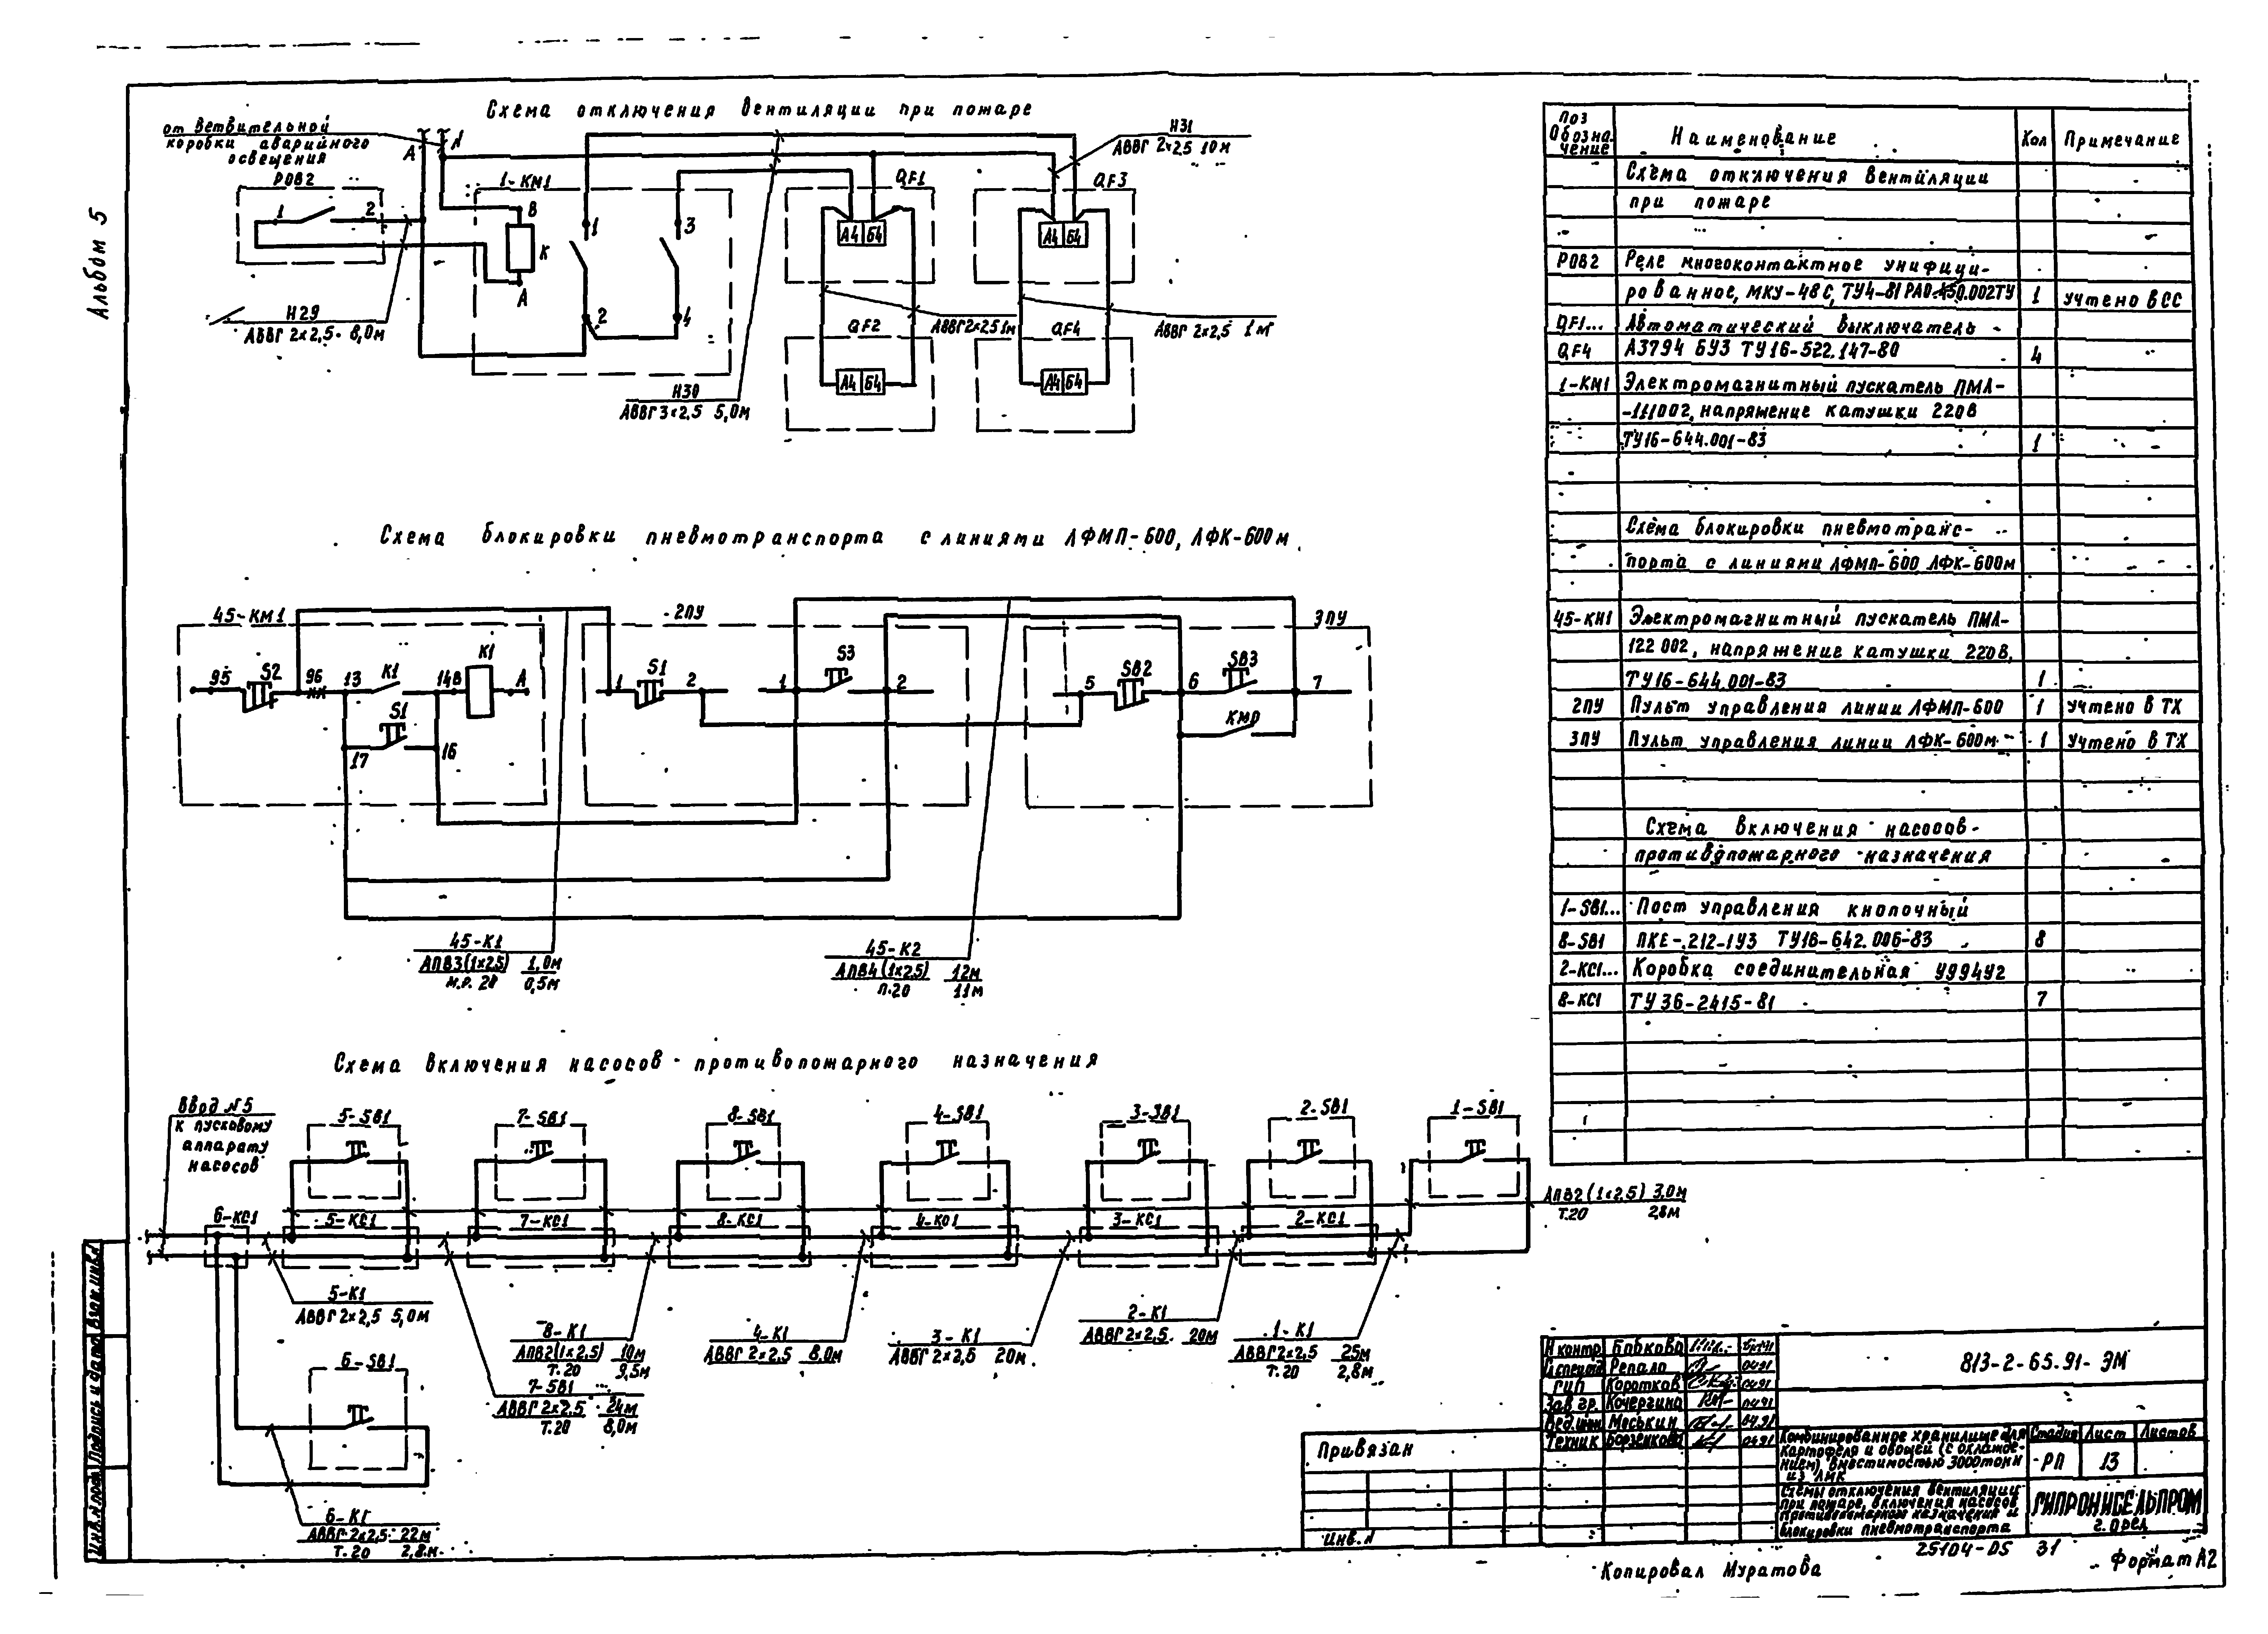 Альбом 5
Схема отключения вентиляции при пожаре
от ветвительной
коробки аварийного
освещения
А
N
РОВ2
1
2
1-КМ1
В
К
А
1
2
3
4
Н29
АВВГ 2×2,5 8,0м
Н30
АВВГ 3×2,5 5,0м
Н31
АВВГ 2×2,5 10м
QF1
А4 Б4
QF3
А4 Б4
QF2
А4 Б4
АВВГ 2×2,5 1м
QF4
А4 Б4
АВВГ 2×2,5 1м
Схема блокировки пневмотранспорта с линиями ЛФМП-600, ЛФК-600м
45-КМ1
95
S2
96
13
К1
14
В
К1
А
S1
17
16
2ПУ
1
S1
2
1
S3
2
3ПУ
5
SB2
6
SB3
7
КМР
45-К1
АПВ3(1×2,5) 1,0м
м.р. 20 0,5м
45-К2
АПВ4(1×2,5) 12м
п.20 11м
Схема включения насосов-противопожарного назначения
Ввод №5
к пусковому
аппарату
насосов
5-SB1
7-SB1
8-SB1
4-SB1
3-SB1
2-SB1
1-SB1
6-КС1
5-КС1
7-КС1
8-КС1
4-КС1
3-КС1
2-КС1
АПВ2(1×2,5) 3,0м
Т.20 2,8м
5-К1
АВВГ 2×2,5 5,0м
8-К1
АПВ2(1×2,5) 10м
Т.20 9,5м
7-SB1
АВВГ 2×2,5 24м
Т.20 8,0м
4-К1
АВВГ 2×2,5 8,0м
3-К1
АВВГ 2×2,5 20м
2-К1
АВВГ 2×2,5 20м
1-К1
АВВГ 2×2,5 25м
Т.20 2,8м
6-SB1
6-К1
АВВГ 2×2,5 22м
Т.20 2,8м
Поз Обозначение Наименование Кол Примечание
Схема отключения вентиляции
при пожаре
РОВ2 Реле многоконтактное унифици-
рованное, МКУ-48С, ТУ4-81 РАО.450.002ТУ 1 учтено в СС
QF1... Автоматический выключатель
QF4 А3794 БУ3 ТУ16-522.147-80 4
1-КМ1 Электромагнитный пускатель ПМЛ-
-111002, напряжение катушки 220В
ТУ16-644.001-83 1
Схема блокировки пневмотранс-
порта с линиями ЛФМП-600 ЛФК-600м
45-КМ1 Электромагнитный пускатель ПМЛ-
122 002, напряжение катушки 220В,
ТУ16-644.001-83 1
2ПУ Пульт управления линии ЛФМП-600 1 учтено в ТХ
3ПУ Пульт управления линии ЛФК-600м 1 учтено в ТХ
Схема включения насосов-
противопожарного назначения
1-SB1... Пост управления кнопочный
8-SB1 ПКЕ-212-1У3 ТУ16-642.006-83 8
2-КС1... Коробка соединительная У994У2
8-КС1 ТУ36-2415-81 7
Н контр. Бобкова
Гл.спец. Репало 04.91
ГИП Коротков 04.91
Зав.гр. Кочергина 04.91
Вед.инж. Меськин 04.91
Техник Борзенкова 04.91
813-2-65.91-ЭМ
Комбинированное хранилище для
картофеля и овощей (с охлажде-
нием) вместимостью 3000 тонн
из ЛМК
Стадия Лист Листов
РП 13
Схемы отключения вентиляции
при пожаре, включения насосов
противопожарного назначения и
блокировки пневмотранспорта
ГИПРОНИСЕЛЬПРОМ
г. Орел
Привязан
Инв. №
Инв.№ подл. Подпись и дата Взам.инв.№
25104-05 31
Копировал Муратова
Формат А2